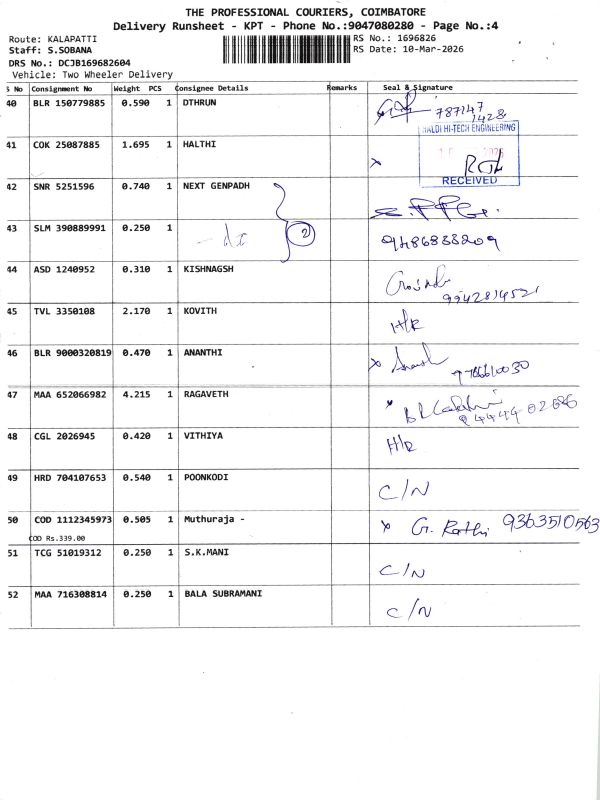 THE PROFESSIONAL COURIERS, COIMBATORE
Delivery Runsheet - KPT - Phone No.:9047080280 - Page No.:4
Route: KALAPATTI
RS No.: 1696826
Staff: S.SOBANA
RS Date: 10-Mar-2026
DRS No.: DCJB169682604
Vehicle: Two Wheeler Delivery
S No Consignment No Weight PCS Consignee Details Remarks Seal & Signature
40 BLR 150779885 0.590 1 DTHRUN 787147
1428
HALDI HI-TECH ENGINEERING
41 COK 25087885 1.695 1 HALTHI x
RECEIVED
42 SNR 5251596 0.740 1 NEXT GENPADH
43 SLM 390889991 0.250 1 2 9486833209
44 ASD 1240952 0.310 1 KISHNAGSH
9942814521
45 TVL 3350108 2.170 1 KOVITH H/R
46 BLR 9000320819 0.470 1 ANANTHI x
47 MAA 652066982 4.215 1 RAGAVETH x
48 CGL 2026945 0.420 1 VITHIYA H/R
49 HRD 704107653 0.540 1 POONKODI C/N
50 COD 1112345973 0.505 1 Muthuraja - x G. Rathi 9363510563
COD Rs.339.00
51 TCG 51019312 0.250 1 S.K.MANI C/N
52 MAA 716308814 0.250 1 BALA SUBRAMANI C/N